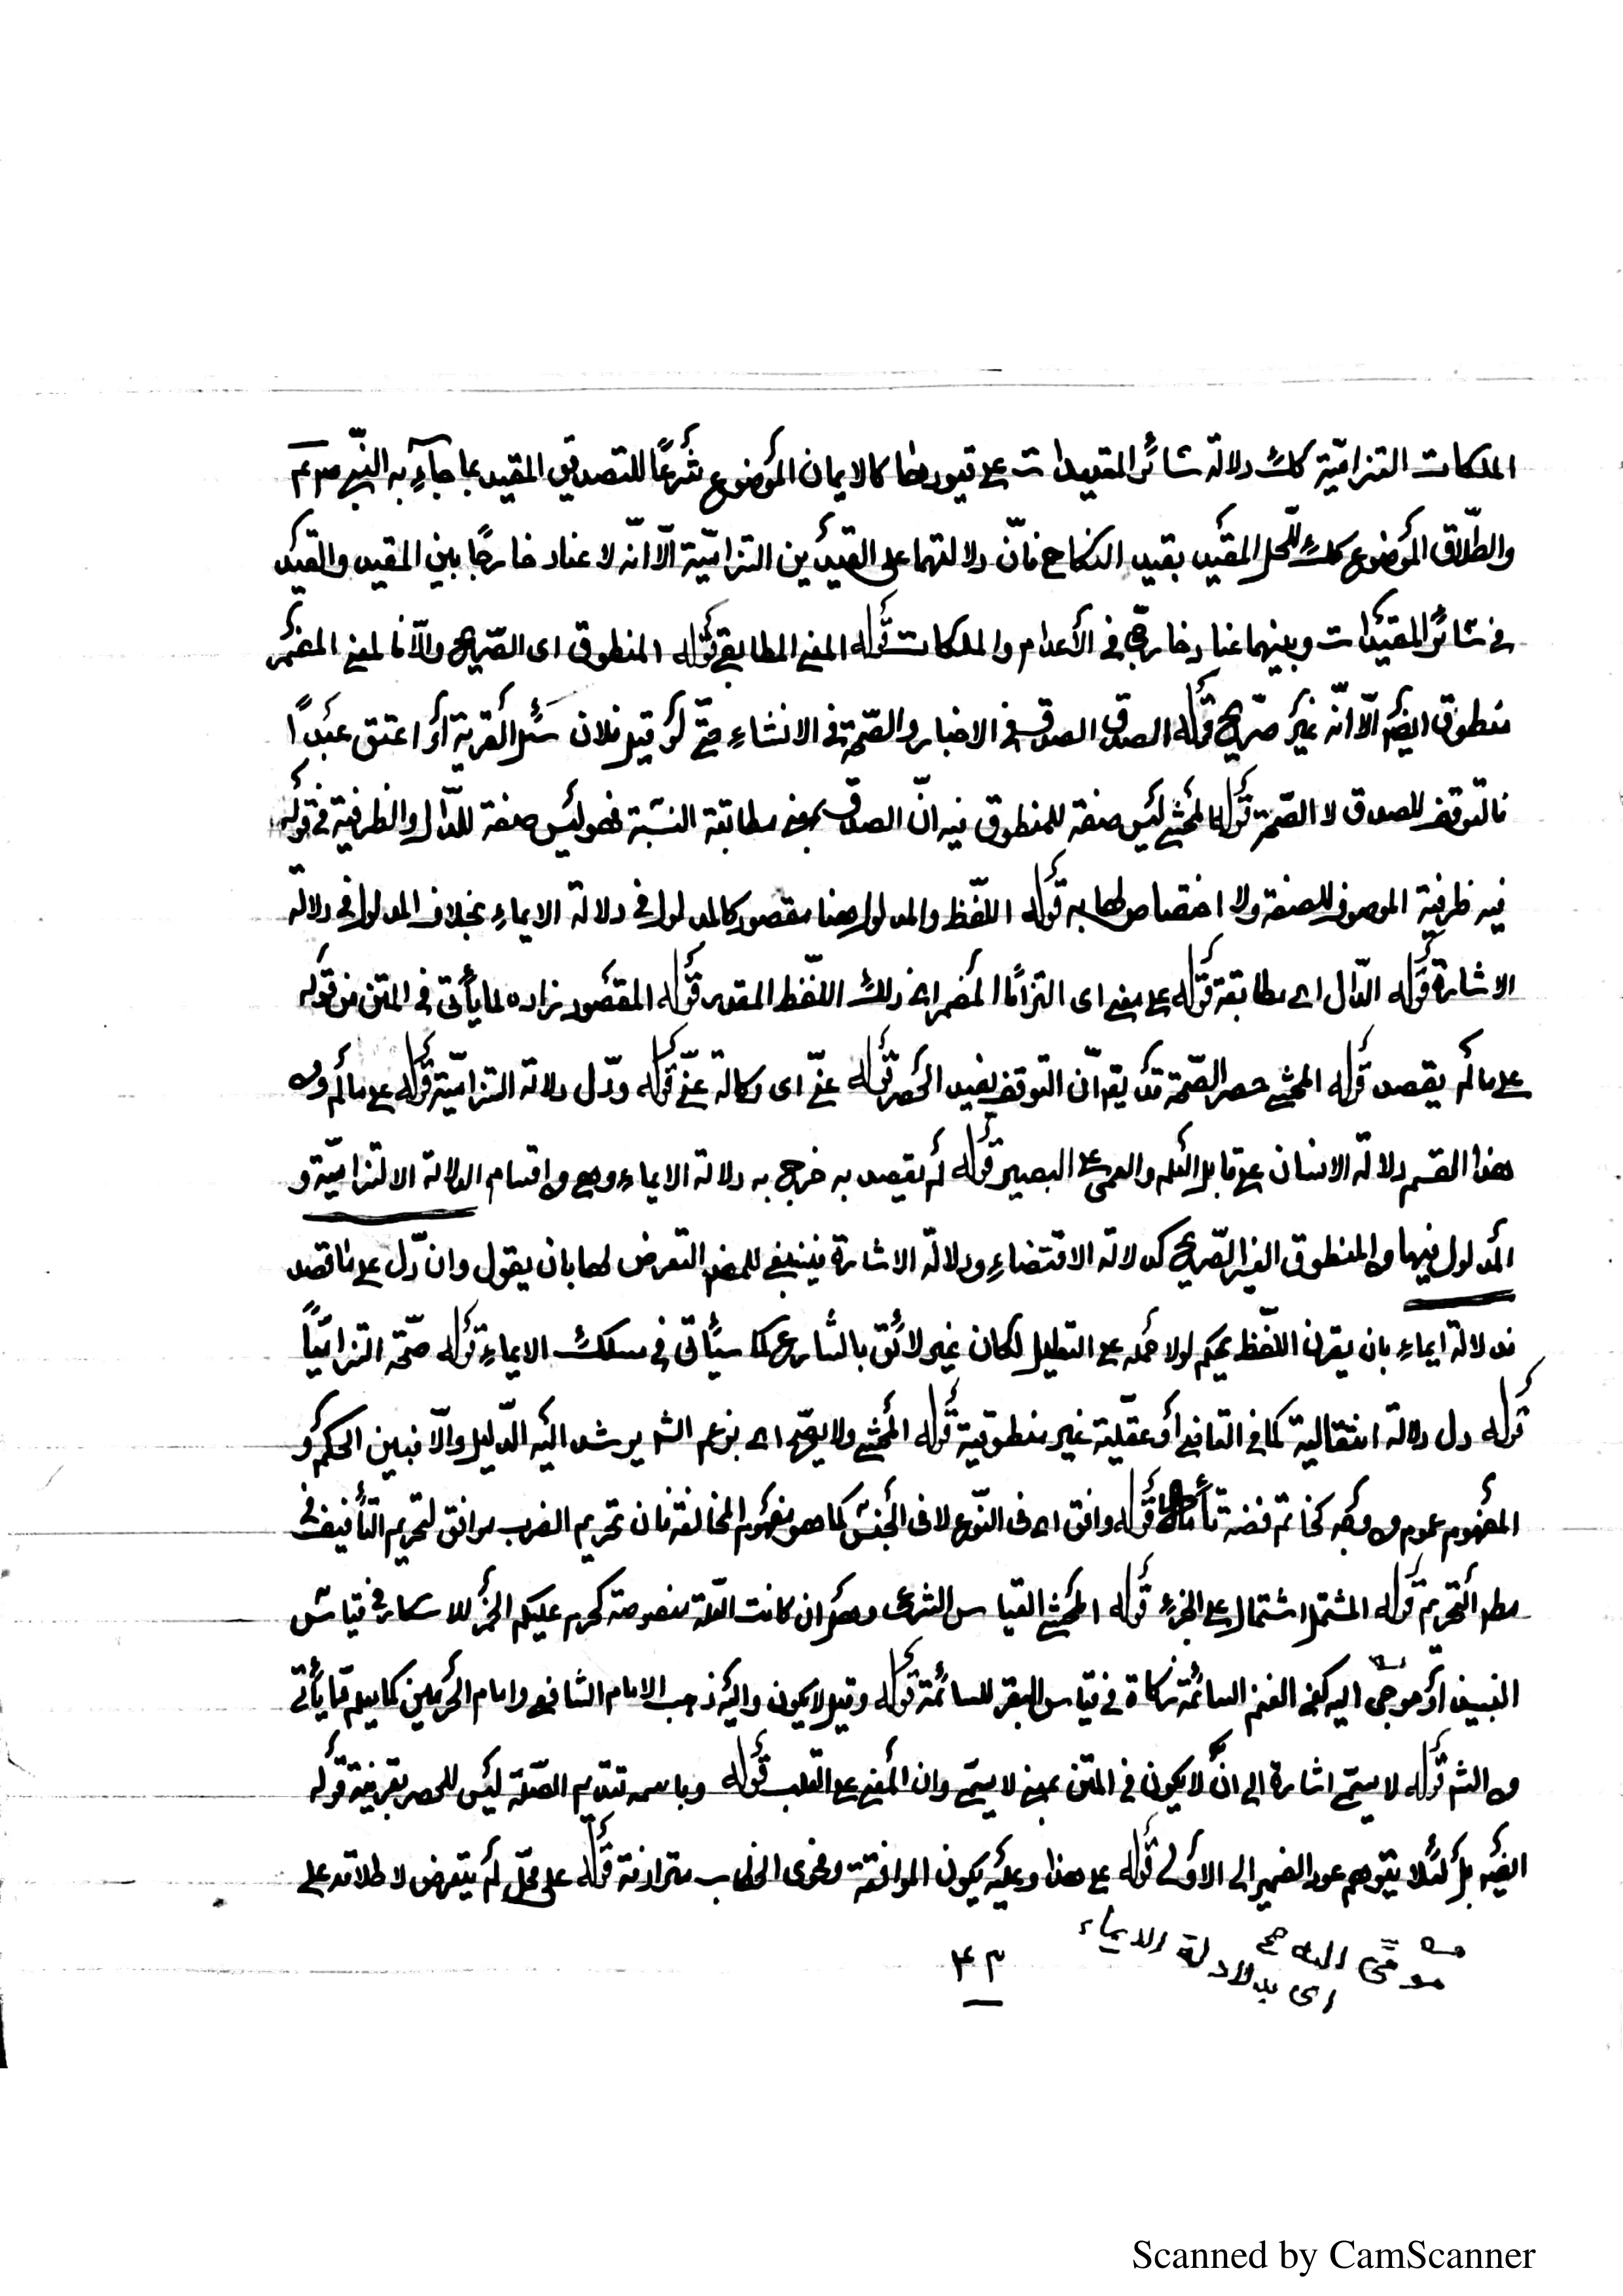 الملكات التزاميّة كك دلالة سائر المقيدات على قيودها كالايمان الموضوع شرعًا للتصديق المقيد بما جاء به النبي صم
والطلاق الموضوع كك للحل المقيد بقيد النكاح فانّ دلالتهما على القيدين التزاميّة الّا انّه لا عناد خارجًا بين المقيد والقيد
فى سائر المقيدات وبينهما عناد خارجى فى الأعدام والملكات قوله المعنى المطابقى قوله المنطوق اى الصّريح والّا فالمعنى المضمر
منطوق ايضم الّا انّه غير صريح قوله الصدق الصدق فى الاخبار والصّحة فى الانشاء حتّى لو قيل فلان سئل القرية أو اعتق عبدًا
فالتوقف للصدق لا الصّحة قوله المحشى ليس صفة للمنطوق فيه انّ الصدق بمعنى مطابقة النسبة فهو ليس صفة للدّال والظرفية فى قوله
فيه ظرفية الموصوف للصفة ولا اختصاص لها به قوله اللفظ والمدلول هنا مقصور كالمدلول فى دلالة الايماء بخلاف المدلول فى دلالة
الاشارة قوله الدّال اى مطابقة قوله على معنى اى التزامًا المضمر اى ذلك اللفظ المقدر قوله المقصور زاده لما يأتى فى المتن من قوله
على ما لم يقصد قوله المحشى حصر الصّحة قد يقم انّ التوقف يفيد الحصر قوله عنّى اى وكالة عنّى قوله ودّل دلالة التزاميّة قوله على ما لم ومن
هذا القسم دلالة الانسان على قابل العلم والعمى على البصير قوله لم يقصد به خرج به دلالة الايماء وهى من اقسام الدلالة الالتزاميّة و
المدلول فيهما من المنطوق الغير الصّريح كدلالة الاقتضاء ودلالة الاشارة فينبغى للمصم التعرض لها بان يقول وان دّل على ما قصد
فدلالة ايماء بان يقرن اللفظ بحكم لولا حمله على التعليل لكان غير لائق بالشارع كما سيأتى فى مسلك الايماء قوله صحّة التزاميّاً
قوله دل دلالة انتقالية كما فى التافيف أو عقليّة غير منطوقية قوله المحشى ولا يصّح اى بزعم الشم يرشد اليه الدّليل والّا فبين الحكم و
المفهوم عموم من وجه كخاتم فضة تأمل قوله وافق اى فى النّوع لا فى الجنس كما هو مفهوم المخالفة فان تحريم الضرب موافق لتحريم التأفيف فى
مطم التحريم قوله المشتمل اشتمال على الجزء قوله المحشى القياس الشرعى وهو ان كانت العلة منصوصة كحرم عليكم الخمر للاسكار فى قياس
النبيذ أو مومى اليه كفى الغنم السائمة زكاة فى قياس البقر للسائمة قوله وقيل لا يكون واليه ذهب الامام الشافعى وامام الحرمين كما يعلم مّما يأتى
من الشم قوله لا يسمّى اشارة الى انّ لا يكون فى المتن بمعنى لا يسمّى وان المعنى على القلب قوله وباسمه تقديم الصّلة ليس للحصر بقرينة قوله
ايضم بل لئلا يتوهم عود الضمير الى الاولى قوله على هذا وعليه يكون الموافقة وفحوى الخطاب مترادفة قوله على محلّ لم يتعرض لاطلاقه على
مومى اليه صح
اى بدلالة الايماء
٤٣
Scanned by CamScanner